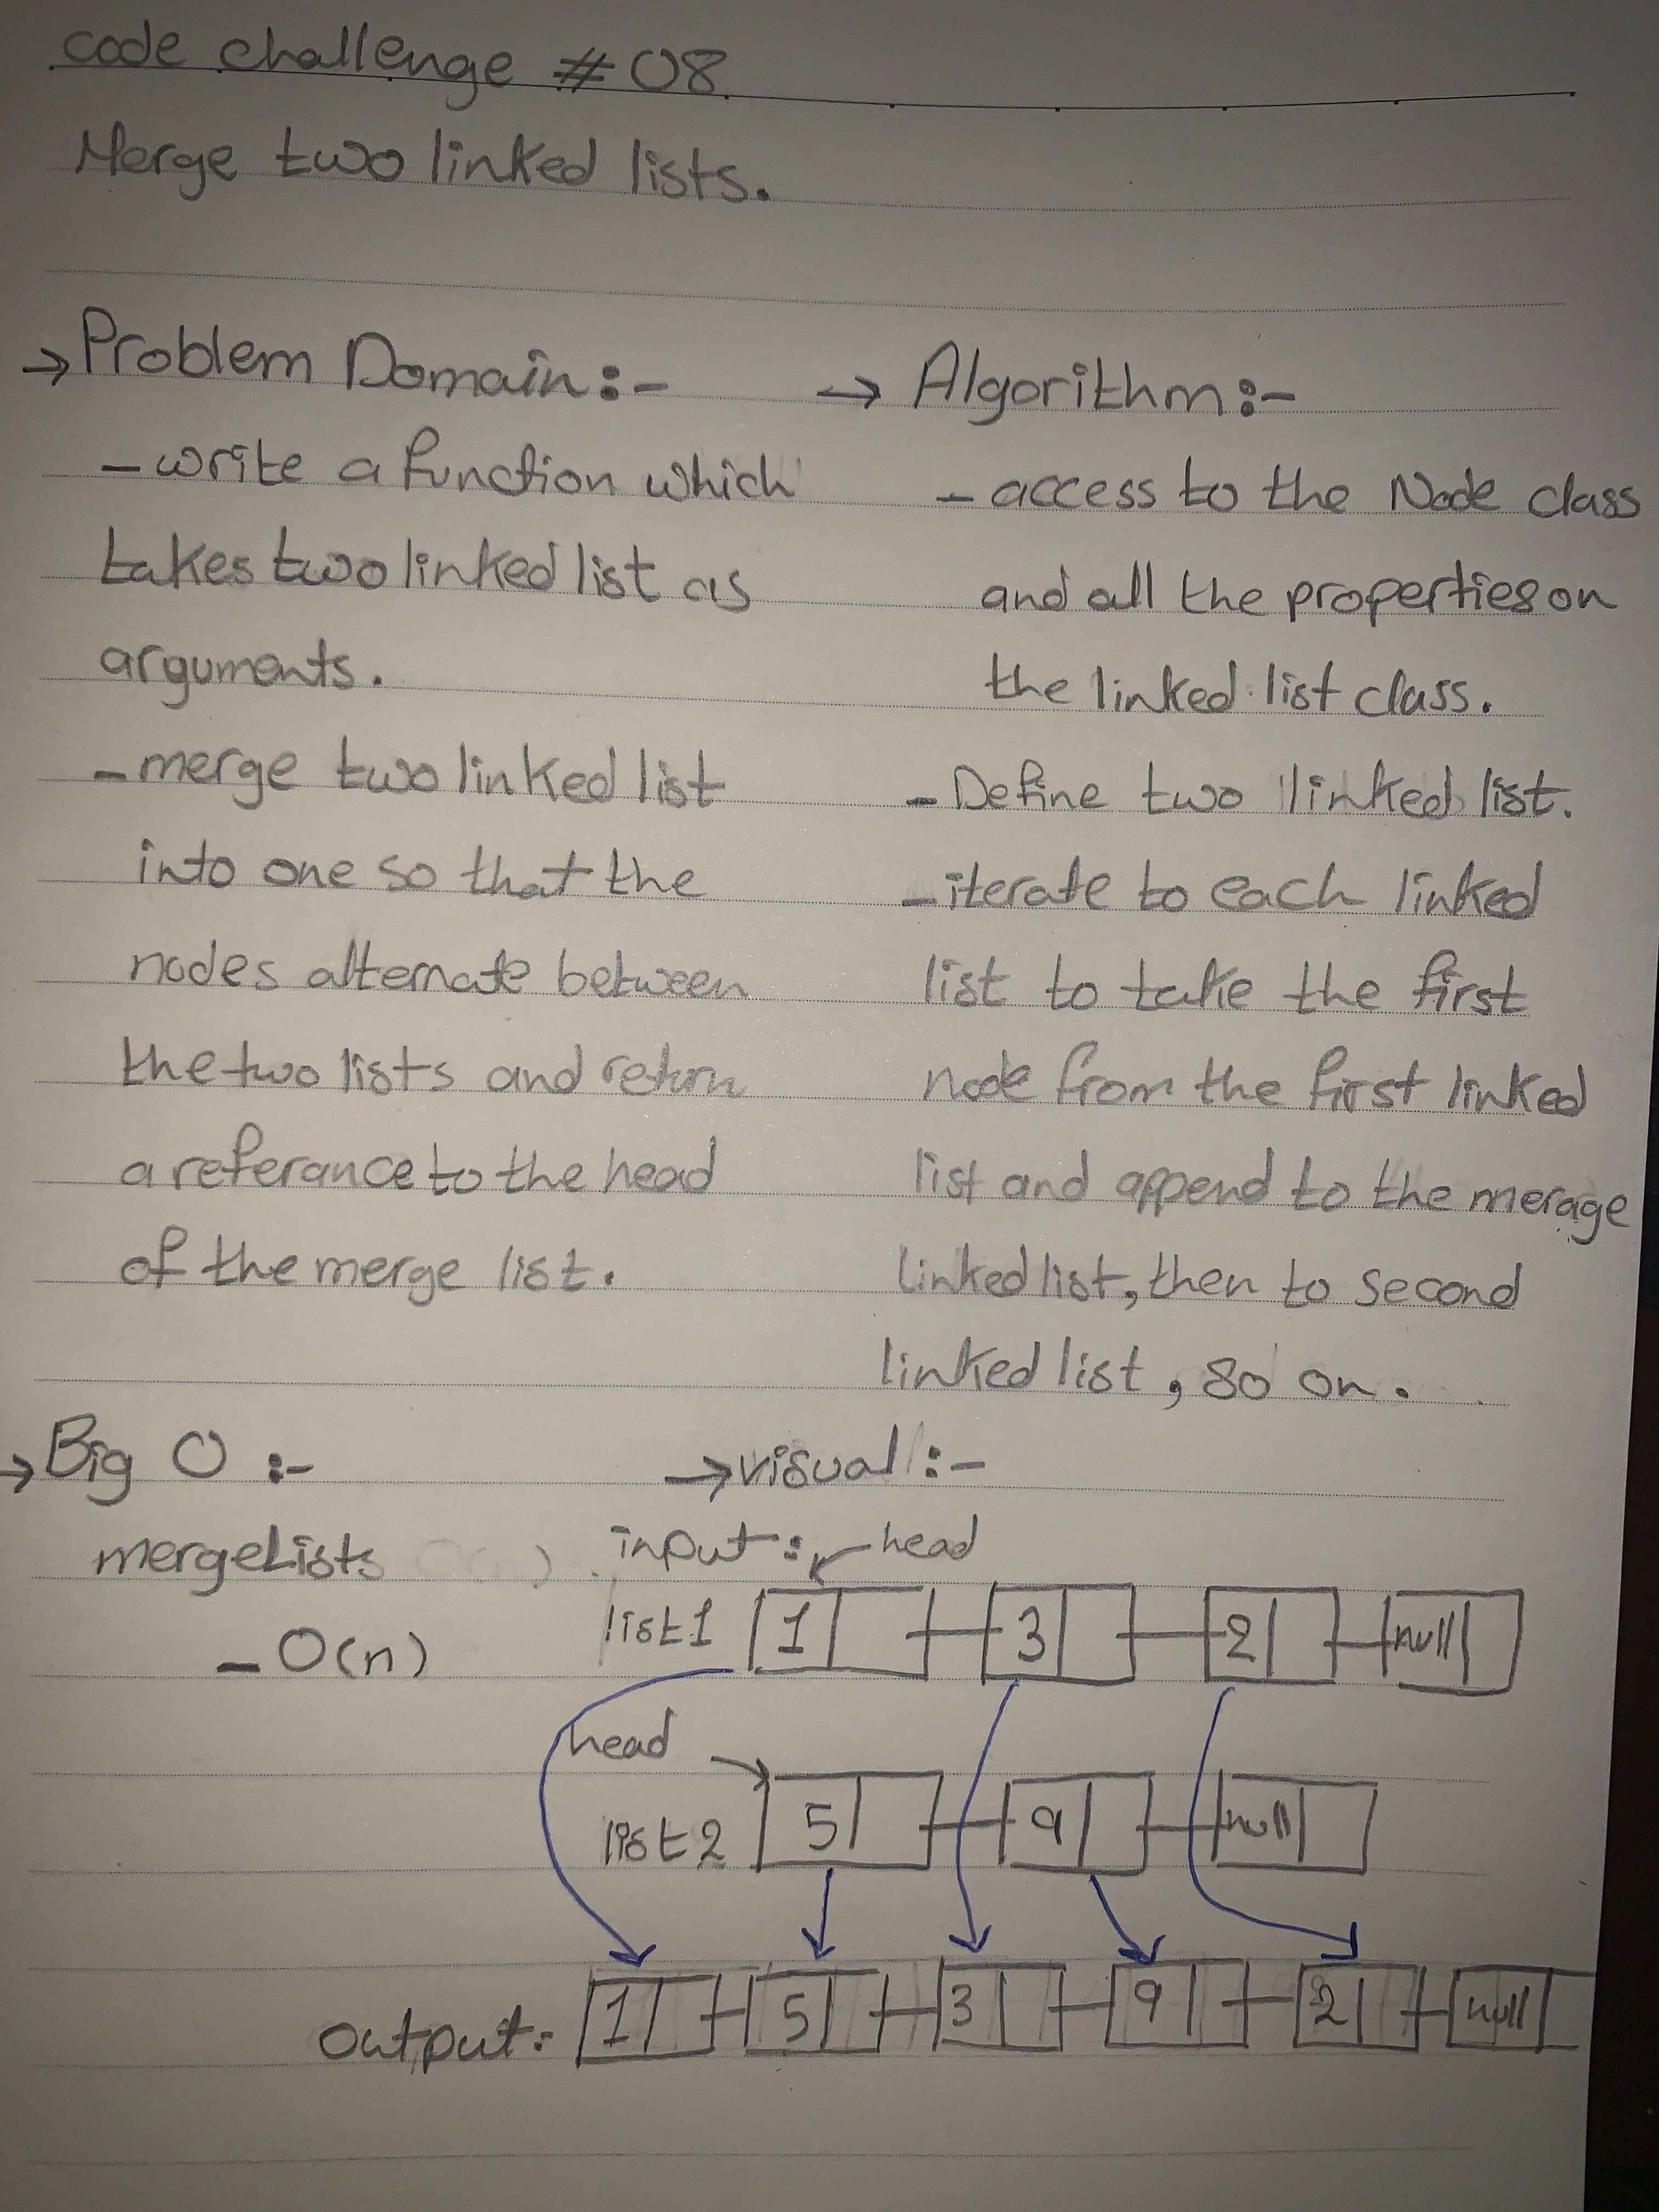 code challenge #08
Merge two linked lists.
→ Problem Domain:-
- write a function which
takes two linked list as
arguments.
- merge two linked list
into one so that the
nodes alternate between
the two lists and return
a referance to the head
of the merge list.
→ Algorithm:-
- access to the Node class
and all the properties on
the linked list class.
- Define two linked list.
- iterate to each linked
list to take the first
node from the first linked
list and append to the merage
linked list, then to second
linked list, so on.
→ Big O :-
mergeLists
- O(n)
→ visual :-
input: head
list1 1 3 2 null
head
list2 5 9 null
output: 1 5 3 9 2 null